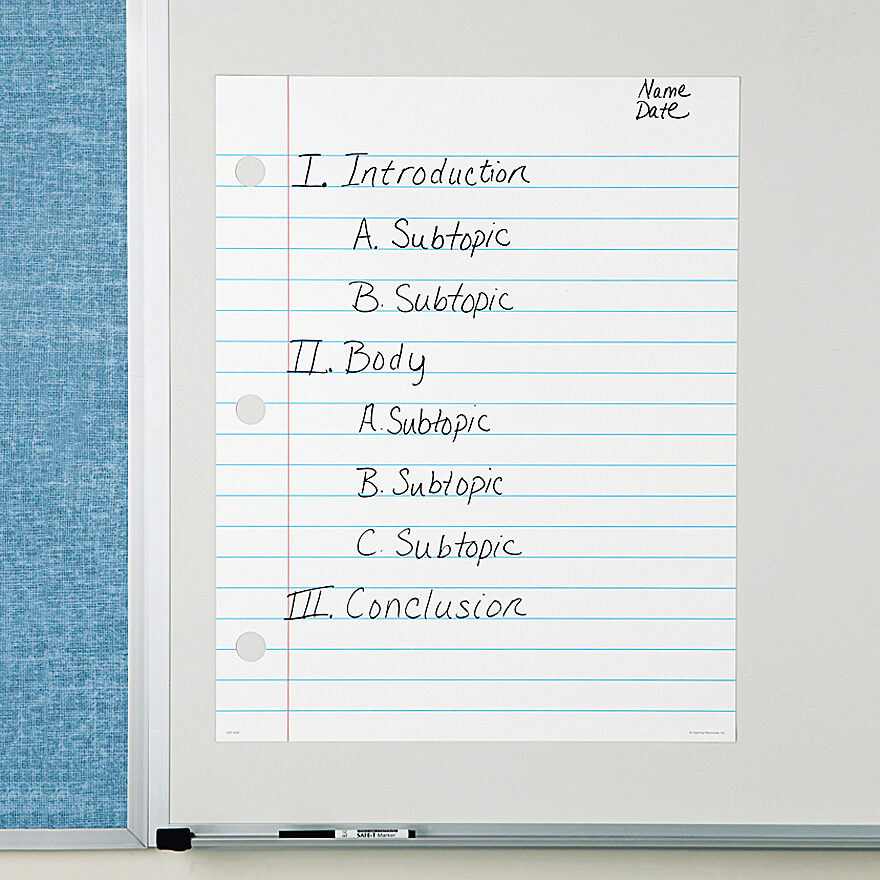 Name
Date
I. Introduction
A. Subtopic
B. Subtopic
II. Body
A. Subtopic
B. Subtopic
C. Subtopic
III. Conclusion
SAFE-T Marker